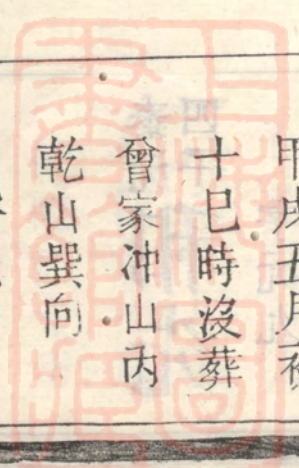 甲戌五月初
十巳時沒葬
曾家冲山丙
乾山巽向